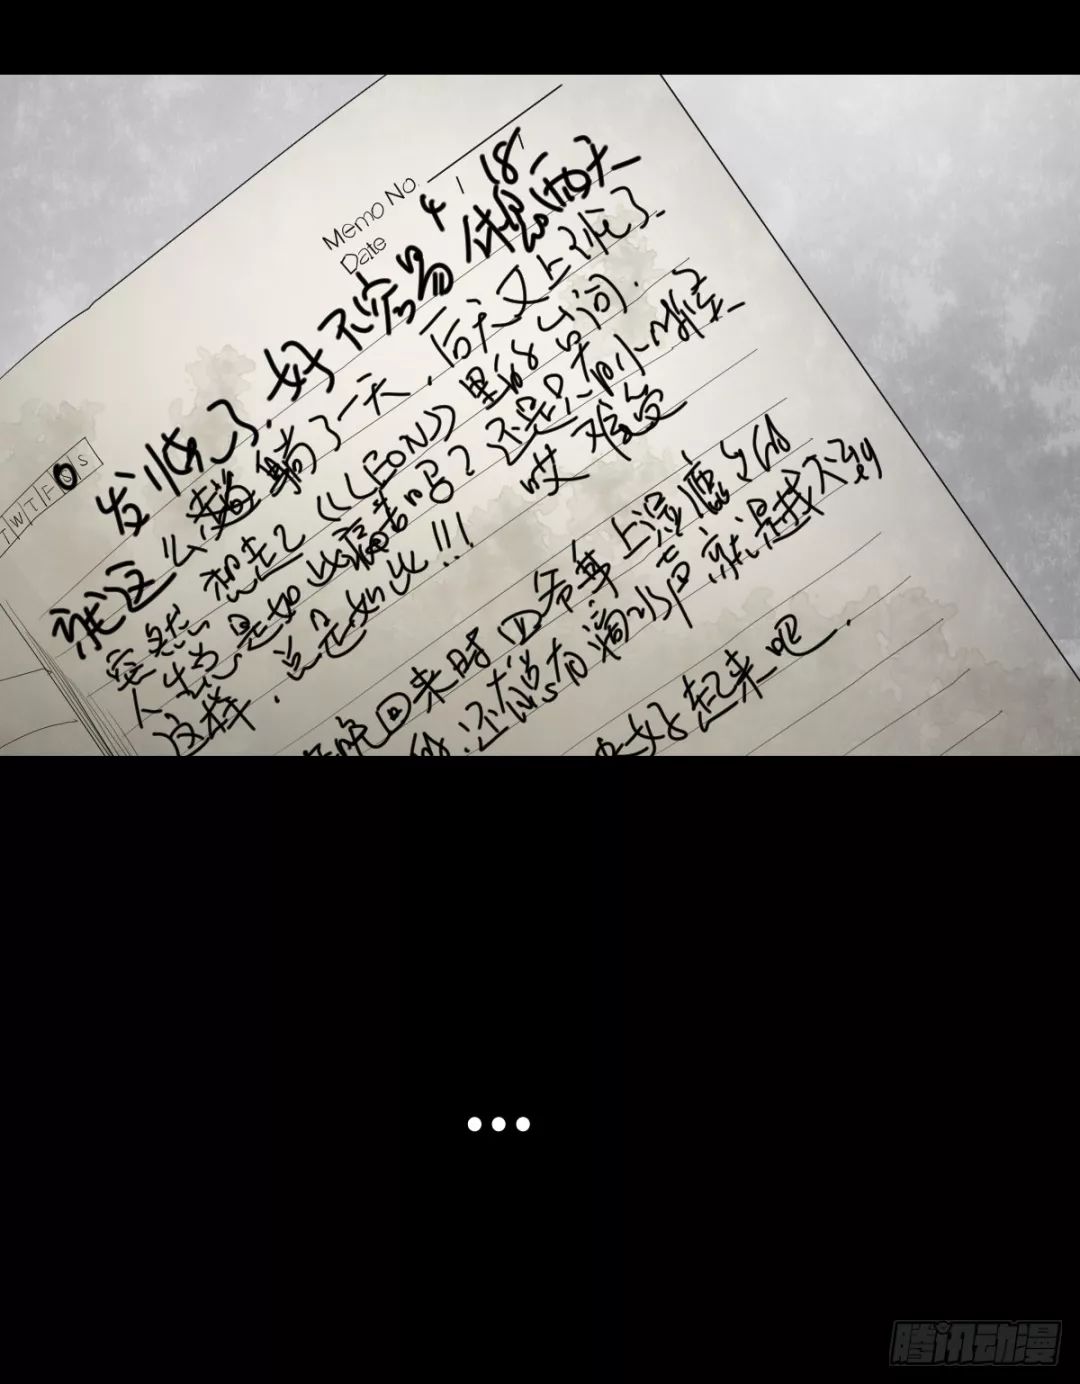 Memo No.
Date 4 / 18
T W T F S S
发烧了.好不容易休息两天
就这么躺了一天,后天又上班了.
突然想起了《LEON》里的台词.
人生总是如此痛苦吗?还是只有小时候
这样.总是如此!!! 哎 难受
晚回来时 爷爷 上湿漉漉的
还说有滴水声,就是找不到
好起来吧.
...
腾讯动漫